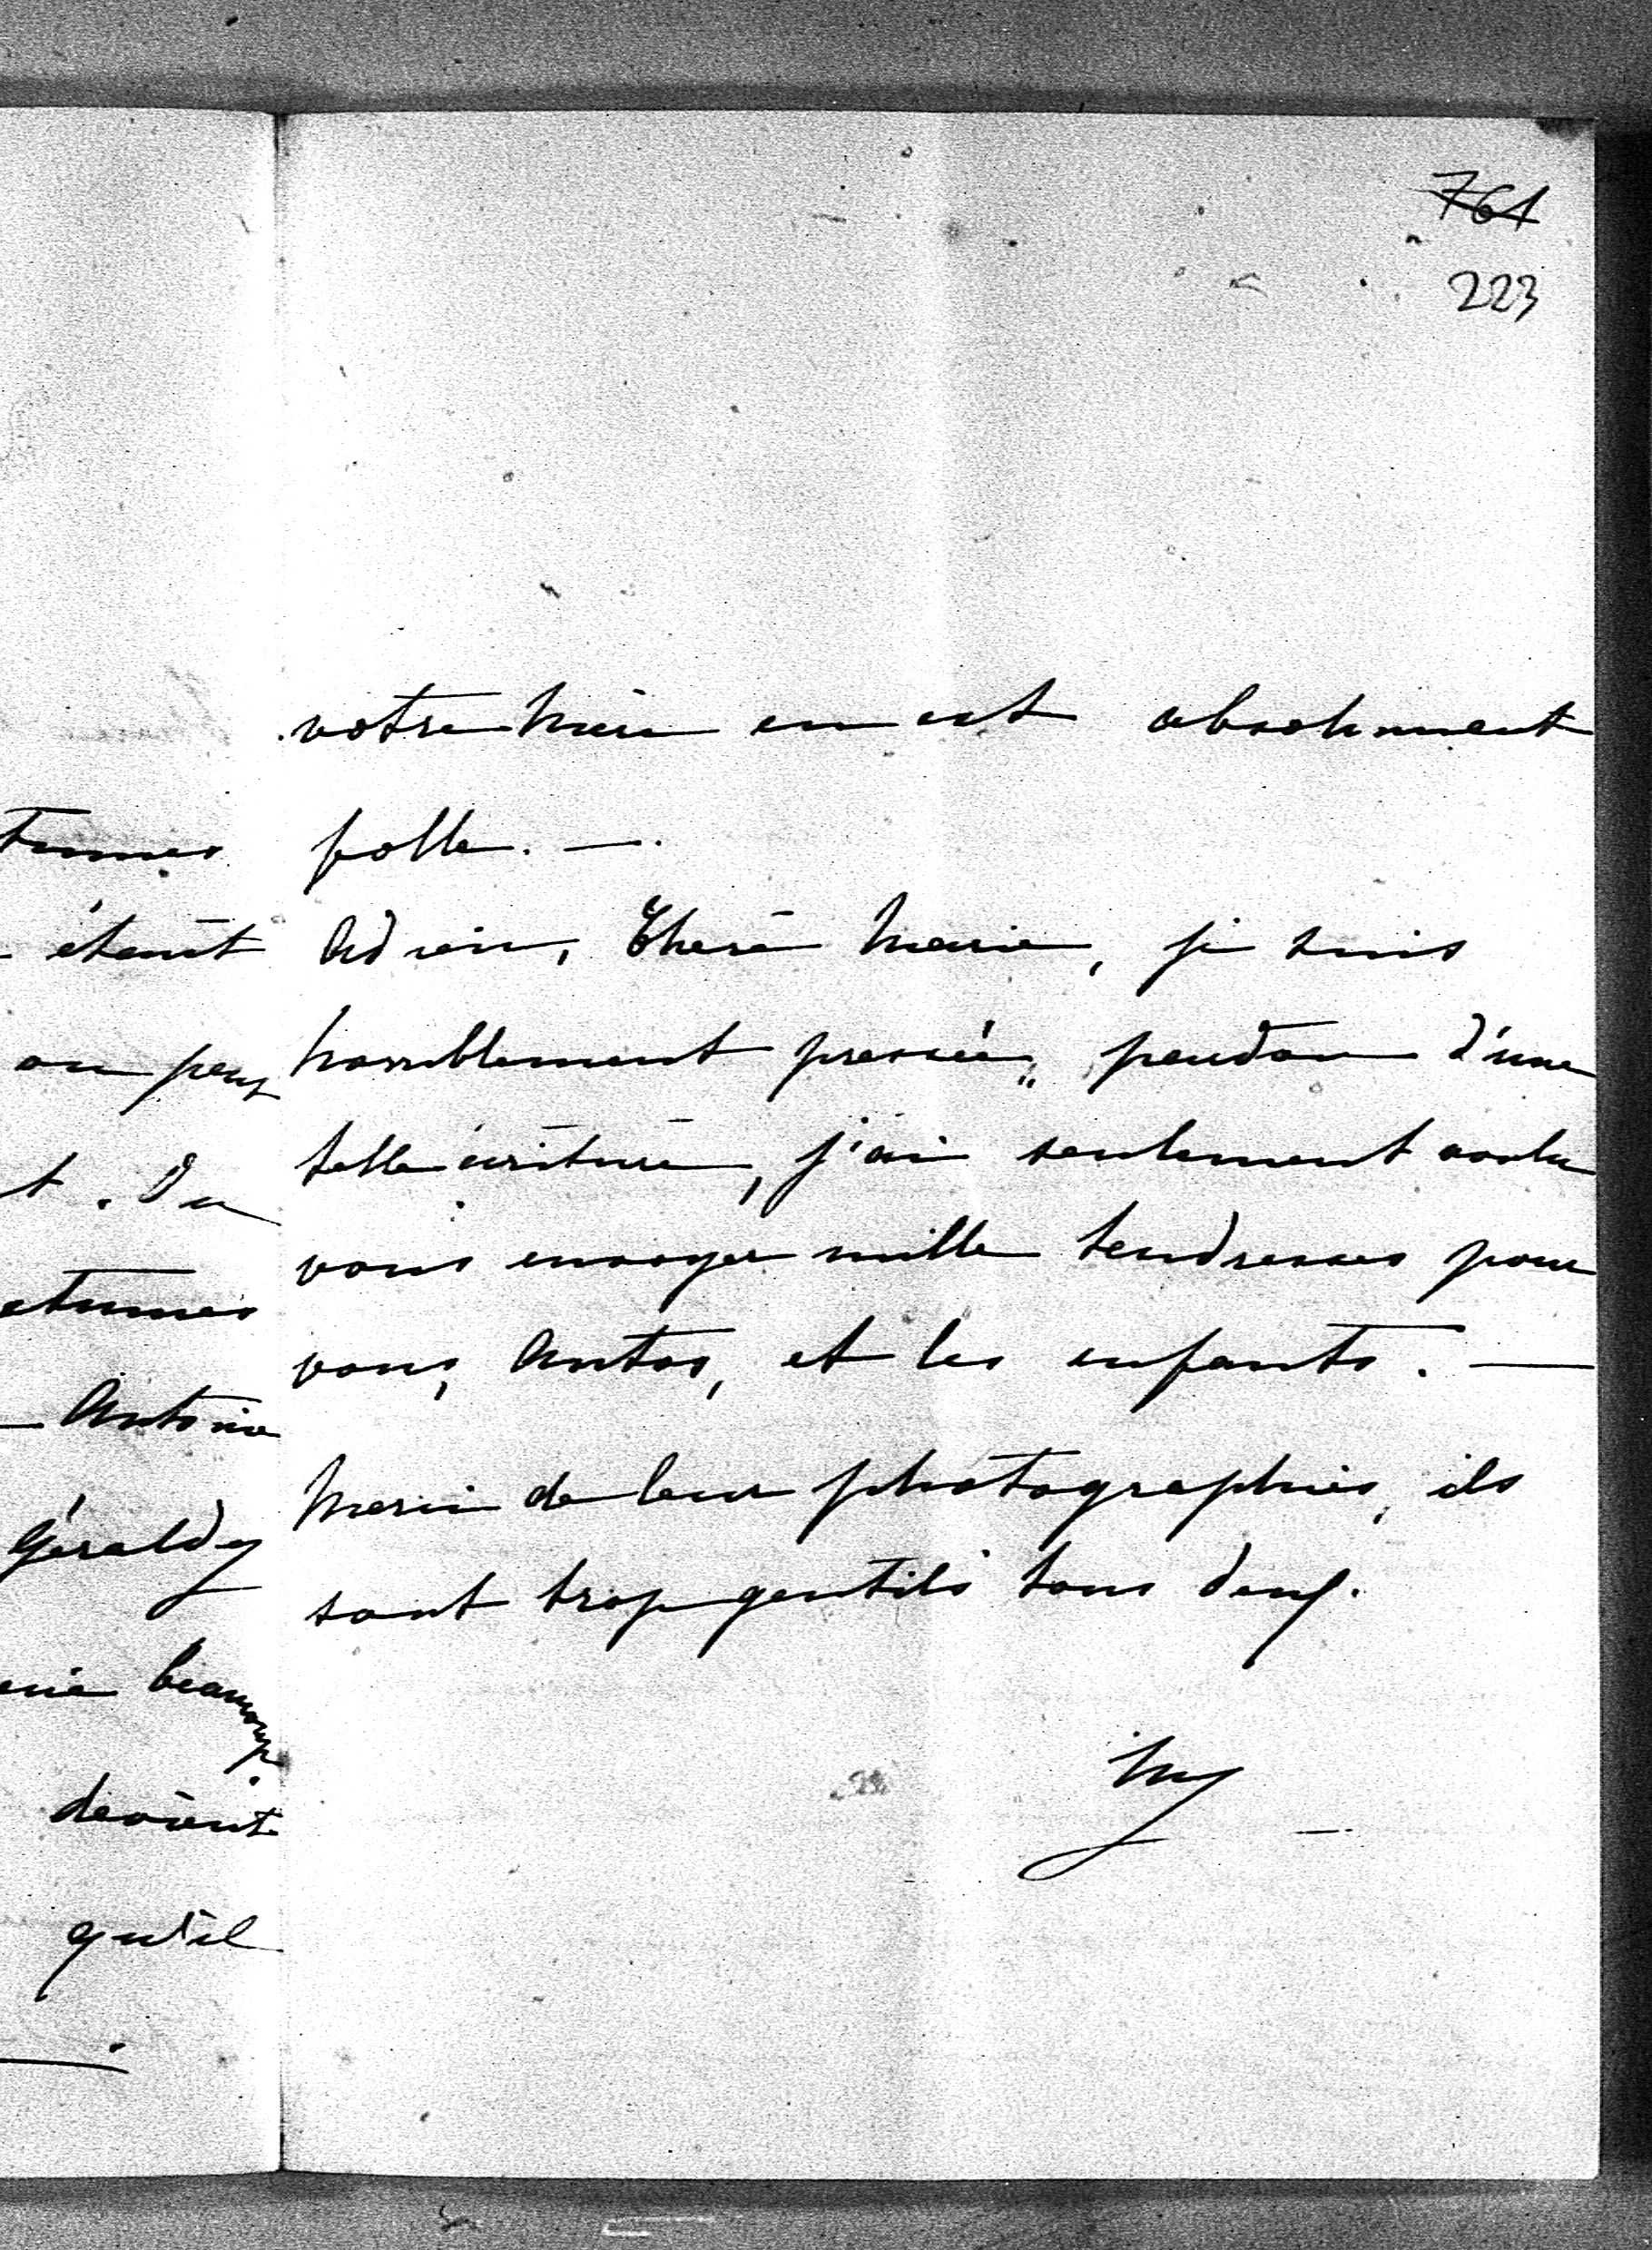 761
223
votre mère en est absolument
folle. —.
Adieu, Chère Marie, je suis
horriblement pressée, pardon d'une
telle écriture, j'ai seulement voulu
vous envoyer mille tendresses pour
vous, Antos, et les enfants. —
Merci de leur photographies, ils
sont trop gentils tous deux.
étant
on peut
t. Du
Antoine
Géraldy
beaucoup.
devient
qu'il